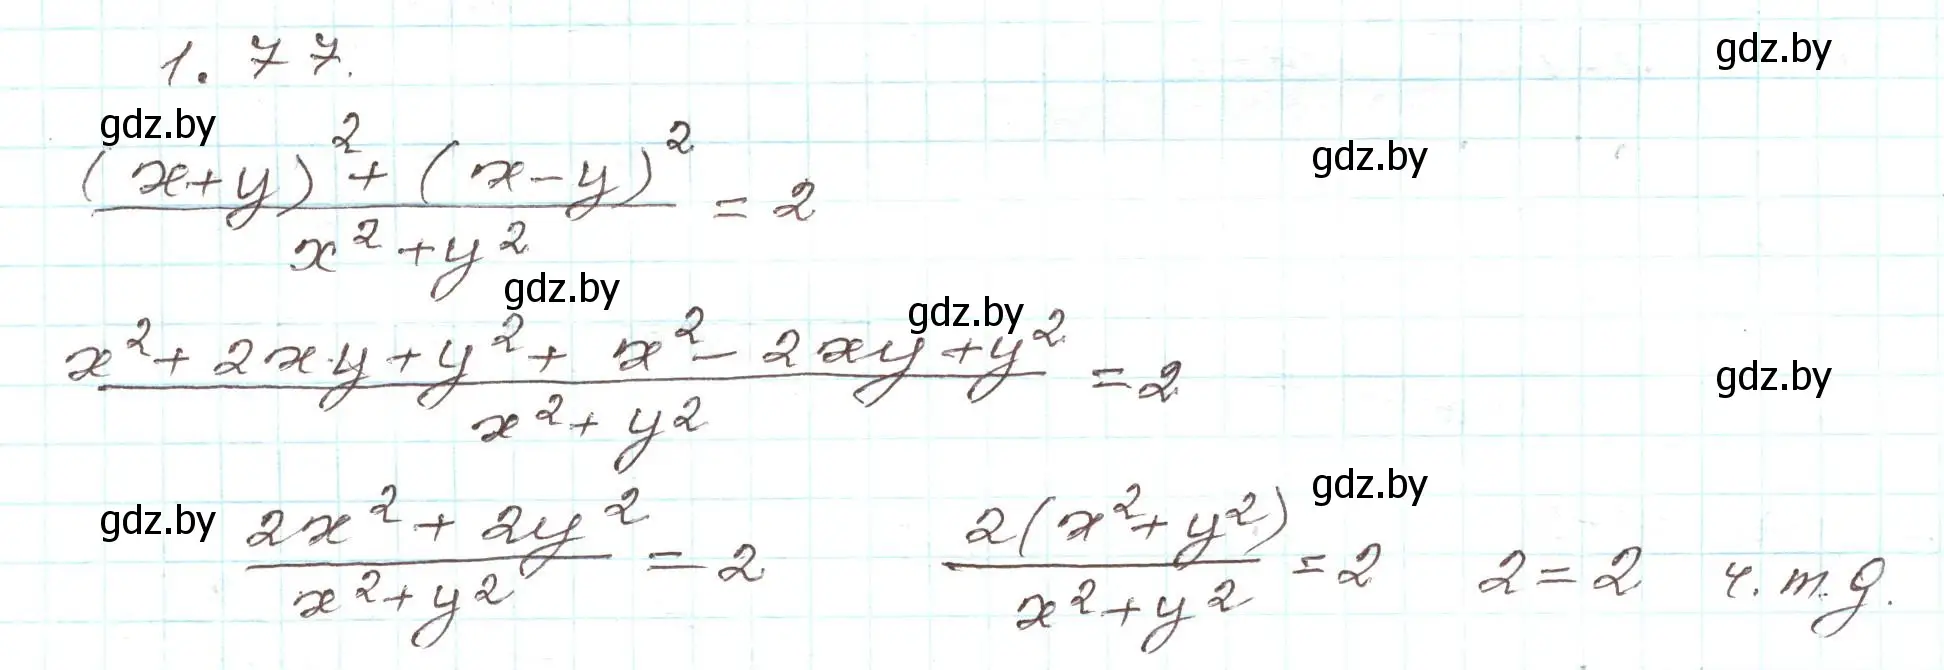 1.77.
gdz.by
gdz.by
gdz.by
(x+y)² + (x-y)² / x²+y² = 2
gdz.by
gdz.by
x² + 2xy + y² + x² - 2xy + y² / x² + y² = 2
gdz.by
gdz.by
gdz.by
2x² + 2y² / x² + y² = 2   2(x² + y²) / x² + y² = 2   2 = 2   ч.т.д.